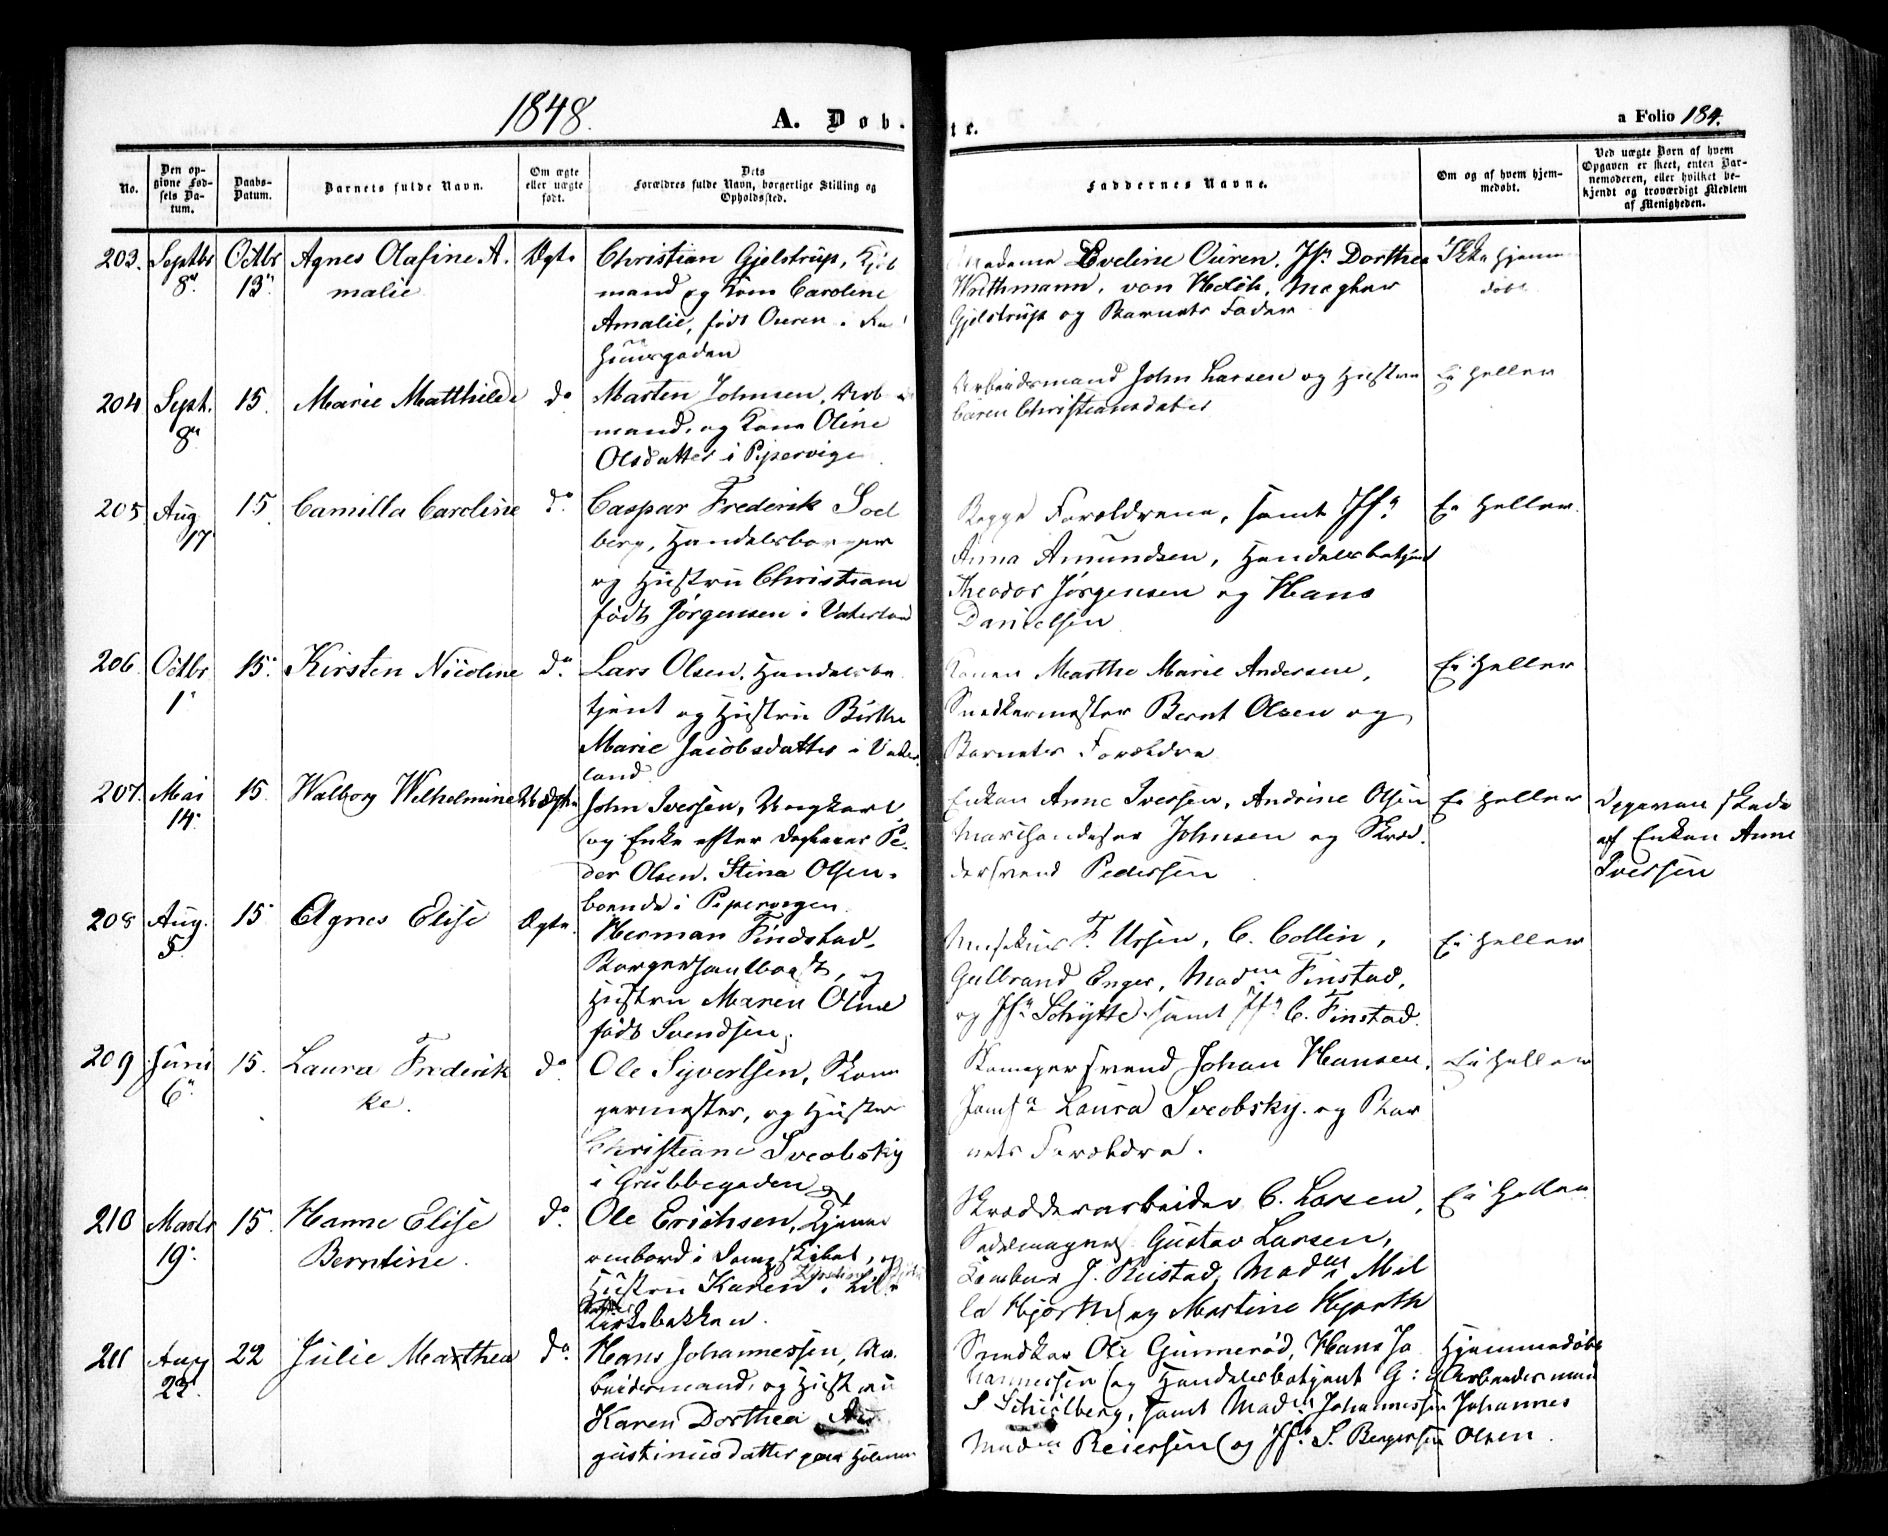 1848.
A. Døb-
te.
a Folio 184.
No.
Den op-
givne Fød-
sels Da-
tum.
Daabs-
Datum.
Barnets fulde Navn.
Om ægte
eller uægte
født.
Dets
Forældres fulde Navn, borgerlige Stilling og
Opholdssted.
Faddernes Navne.
Om og af hvem hjem-
medøbt.
Ved uægte Børn af hvem
Opgaven er skeet, enten Bar-
nemoderen, eller hvilket be-
kjendt og troværdigt Medlem
af Menigheden.
203. Septbr 8de Octbr 13de Agnes Olafine A-
malie
Ægte
Christian Gjelstrup, Kjøb
mand og Kone Caroline
Amalie, født Ouren i
huusgaden
Madame Eveline Ouren, Jfr Dorthea
Wrethmann, von Hedøk,
Gjelstrup og Barnets Fader
Ikke hjemme
døbt
204 Sept. 8de 15. Marie Matthilde do
Marten Johnsen, Arb
mand, og Kone Oline
Olsdatter i Pipervigen
Arbeidsmand John Larsen og Hustru
Caren Christiansdatter
Ei heller
205 Aug 17 15. Camilla Caroline do.
Caspar Frederik Soel
berg, Handelsborger
og Hustru Christiane
født Jørgensen i Vaterland
Begge Forældrene, samt Jfr
Anna Amundsen, Handelsbetjent
Theodor Jørgensen og Hans
Danielsen
Ei heller.
206 Octbr 1 15. Kirsten Nicoline do.
Lars Olsen, Handelsbe
tjent og Hustru Birthe
Marie Jacobsdatter i Vater-
land.
Konen Marthe Marie Andersen,
Snedkermester Bernt Olsen og
Barnets Forældre
Ei heller
207. Mai 14 15. Walborg Wilhelmine Uægte
John Iversen, Ungkarl
og Enke efter Pe-
der Olsen, Stina Olsen-
boende i Pipervigen.
Enken Anne Iversen, Andrine Olsen
Johnsen og Skræd-
dersvend Pedersen
Ei heller
Opgaven skede
af Enken Anne
Iversen
208 Aug. 5. 15 Agnes Elise Ægte.
Herman Findstad,
og
Hustru Maren Oline
født Svendsen.
F. Ursin, C. Collin,
Gulbrand Enger, Madm Finstad,
og Jfr Schytte samt Jfr C. Finstad.
Ei heller
209 Juni 6te 15. Laura Frederik
ke.
do.
Ole Syvertsen, Skoma
germester, og Hustru
Christiane Svcobsky
i Grubbegaden
Skomagersvend Johan Hansen,
Jomfr Laura Svcobsky og Bar
nets Forældre.
Ei heller
210 Marts 19. 15. Hanne Elise
Berntine.
do.
Ole Erichsen,
ombord i Dampskibet, og
Hustru Karen i Lille
bakken.
Skrædderarbeider C. Larsen,
Sadelmager Gustav Larsen,
J. Ruistad, Madm Mil
la Hjorth og Martine Hjorth
Ei heller
211 Aug 22. 22 Julie Mathea do.
Hans Johannessen, Ar-
beidermand, og Hustru
Karen Dorthea Au
gustinusdatter paa Holmen
Snedker Ole Gunnerød, Hans Jo
hannessen og Handelsbetjent G:
S Schiølberg, samt Madm Johannessen
Madm Reiersen og Jfr S. Bergersen
Hjemmedøbt
af Arbeidsmand
Johannes
Olsen.